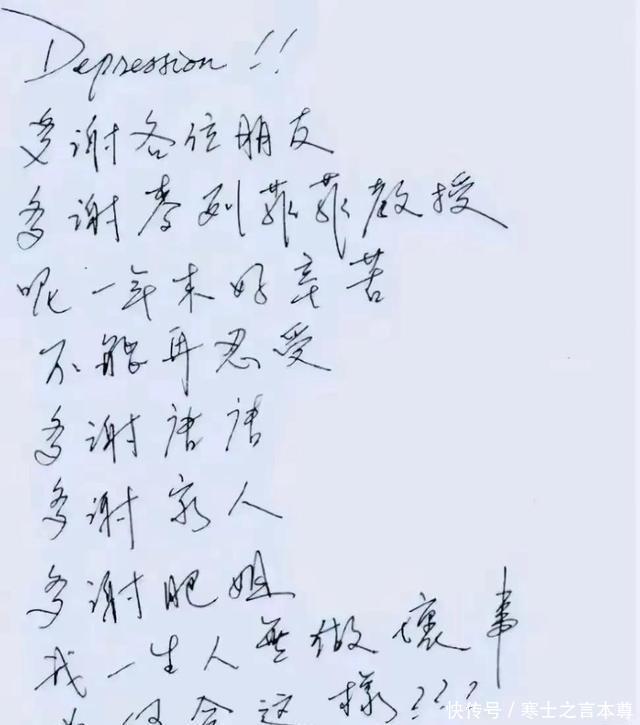 Depression!!
多谢各位朋友
多谢麥列菲菲教授
呢一年来好辛苦
不能再忍受
多谢唐唐
多谢家人
多谢肥姐
我一生人無做壞事
为何会这樣???
快传号/寒士之言本尊